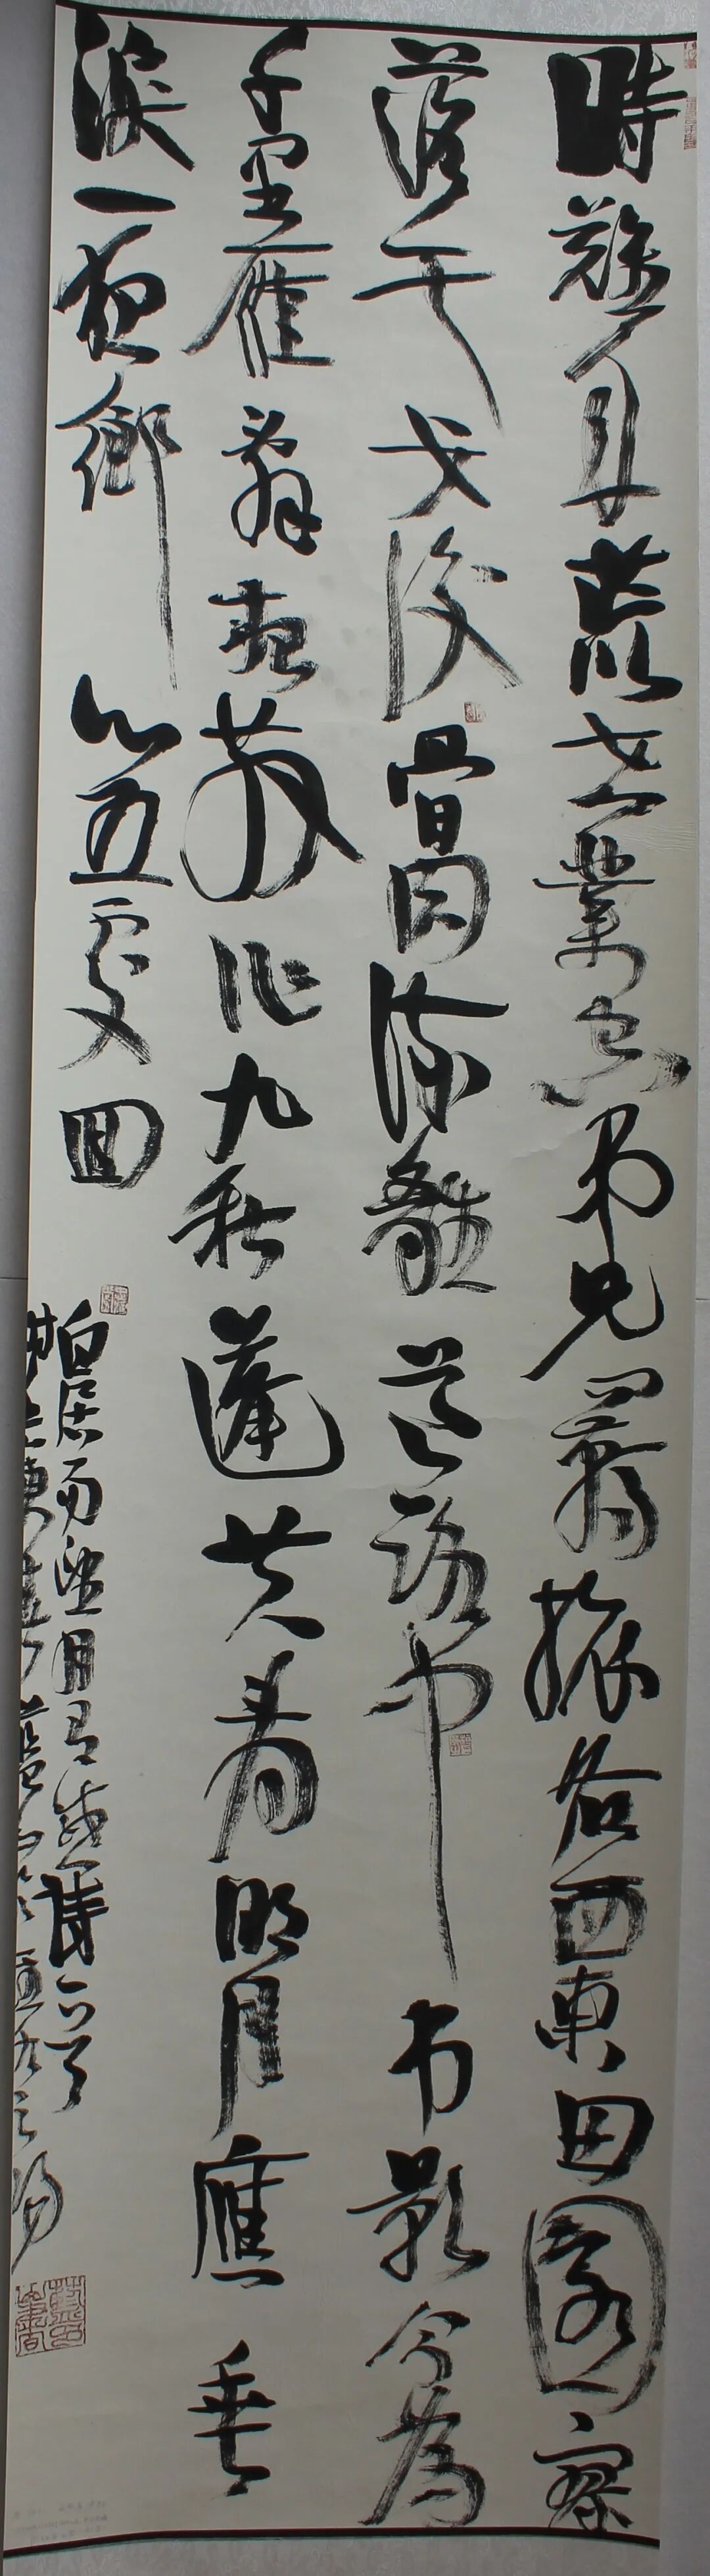 時難年荒世業空弟兄羈旅各西東田園寥
落干戈後骨肉流離道路中弔影分為
千里雁辭根散作九秋蓬共看明月應垂
淚一夜鄉心五處同
白居易望月有感詩一首